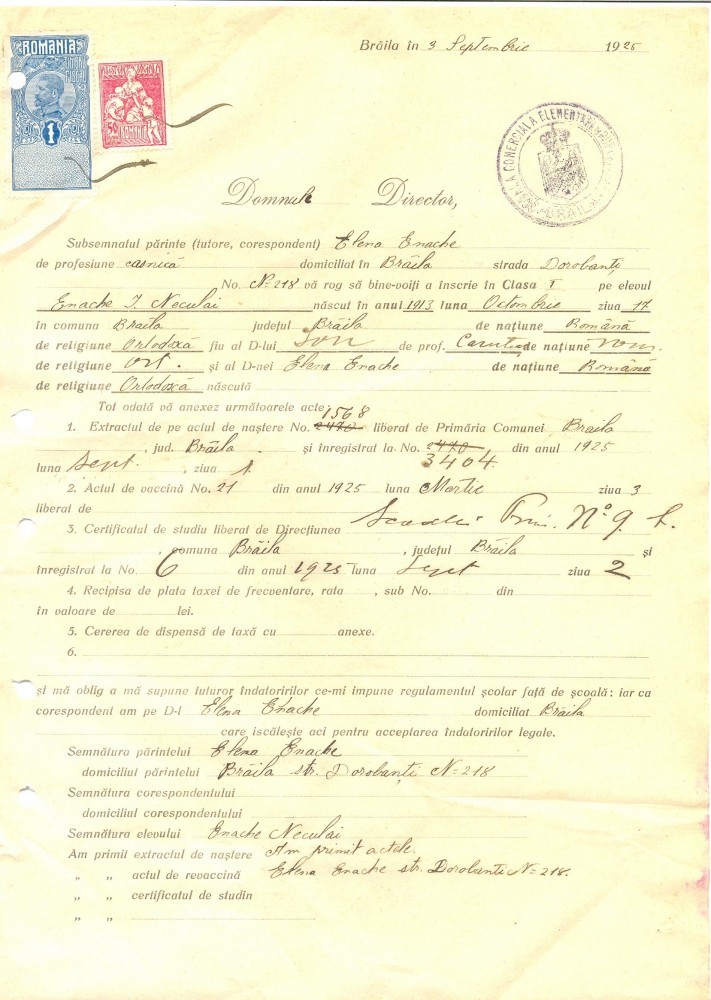 Brăila în 3 Septembrie 1925
ROMANIA
TIMBRU FISCAL
1
50
ROMANIA
ȘCOALA COMERCIALA ELEMENTARA
BRAILA
Domnule Director,
Subsemnatul părinte (tutore, corespondent) Elena Enache
de profesiune casnică domiciliat în Brăila strada Dorobanți
No. No 218 vă rog să bine-voiți a înscrie în Clasa I pe elevul
Enache I. Neculai născut în anul 1913 luna Octombrie ziua 17
în comuna Braila județul Brăila de națiune Română
de religiune Ortodoxă fiu al D-lui Ion de prof. de națiune rom.
de religiune ort. și al D-nei Elena Enache de națiune Română
de religiune Ortodoxă născută
Tot odată vă anexez următoarele acte:
1568
1. Extractul de pe actul de naștere No. 2470 liberat de Primăria Comunei Braila
, jud. Brăila. și înregistrat la No. 2470 din anul 1925
3404
luna Sept. , ziua 1.
2. Actul de vaccină No. 21 din anul 1925 luna Martie ziua 3
liberat de
3. Certificatul de studiu liberat de Direcțiunea Scoalei Prim. No 9.
, comuna Brăila , județul Brăila și
înregistrat la No. 6 din anul 1925 luna Sept ziua 2
4. Recipisa de plata taxei de frecventare, rata , sub No. din
în valoare de lei.
5. Cererea de dispensă de taxă cu anexe.
6.
și mă oblig a mă supune tuturor îndatoririlor ce-mi impune regulamentul școlar față de școală: iar ca
corespondent am pe D-l Elena Enache domiciliat Brăila
care iscălește aci pentru acceptarea îndatoririlor legale.
Semnătura părintelui Elena Enache
domiciliul părintelui Brăila str. Dorobanți No 218
Semnătura corespondentului
domiciliul corespondentului
Semnătura elevului Enache Neculai
Am primit extractul de naștere Am primit actele.
„ „ actul de revaccină Elena Enache str. Dorobanti No 218.
„ „ certificatul de studin
„ „